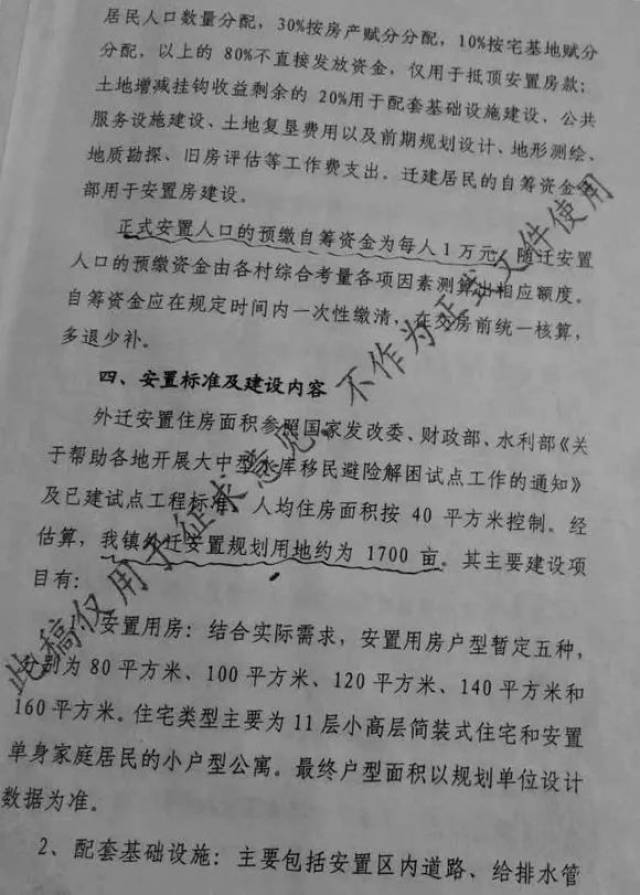 居民人口数量分配，30%按房产赋分分配，10%按宅基地赋分
分配，以上的 80%不直接发放资金，仅用于抵顶安置房款；
土地增减挂钩收益剩余的 20%用于配套基础设施建设、公共
服务设施建设、土地复垦费用以及前期规划设计、地形测绘、
地质勘探、旧房评估等工作费支出。迁建居民的自筹资金全
部用于安置房建设。
正式安置人口的预缴自筹资金为每人 1 万元，随迁安置
人口的预缴资金由各村综合考量各项因素测算出相应额度。
自筹资金应在规定时间内一次性缴清，在交房前统一核算，
多退少补。
四、安置标准及建设内容
外迁安置住房面积参照国家发改委、财政部、水利部《关
于帮助各地开展大中型水库移民避险解困试点工作的通知》
及已建试点工程标准，人均住房面积按 40 平方米控制。经
估算，我镇外迁安置规划用地约为 1700 亩。其主要建设项
目有：
1、安置用房：结合实际需求，安置用房户型暂定五种，
分别为 80 平方米、100 平方米、120 平方米、140 平方米和
160 平方米。住宅类型主要为 11 层小高层简装式住宅和安置
单身家庭居民的小户型公寓。最终户型面积以规划单位设计
数据为准。
2、配套基础设施：主要包括安置区内道路、给排水管
此稿仅用于征求意见，不作为正式文件使用